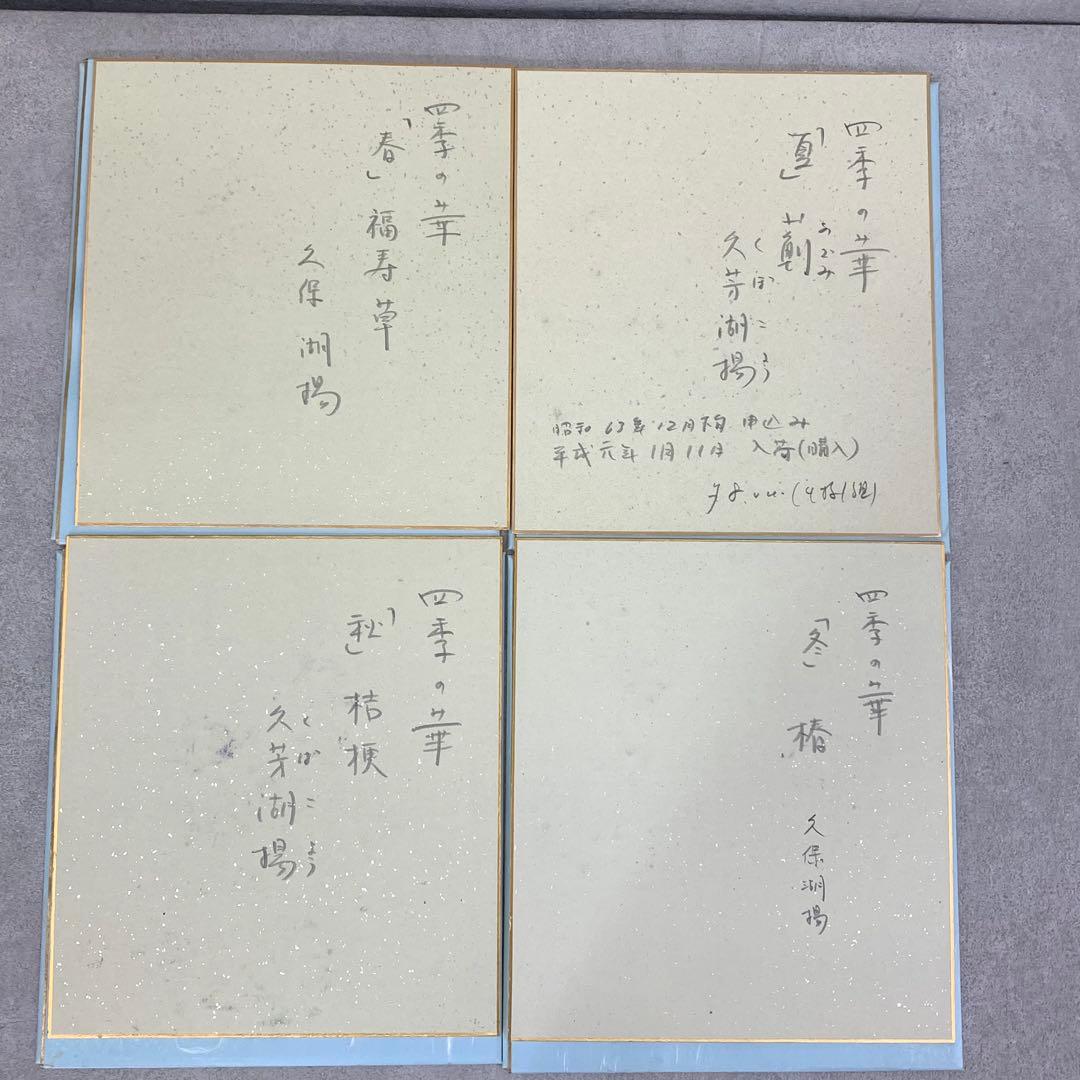 四季の華
「春」福寿草
久保湖揚
四季の華
「夏」薊
あざみ
久芳湖揚
くぼこよう
昭和63年12月下旬 申込み
平成元年1月11日 入荷(購入)
四季の華
「秋」桔梗
久芳湖揚
くぼこよう
四季の華
「冬」椿
久保湖揚